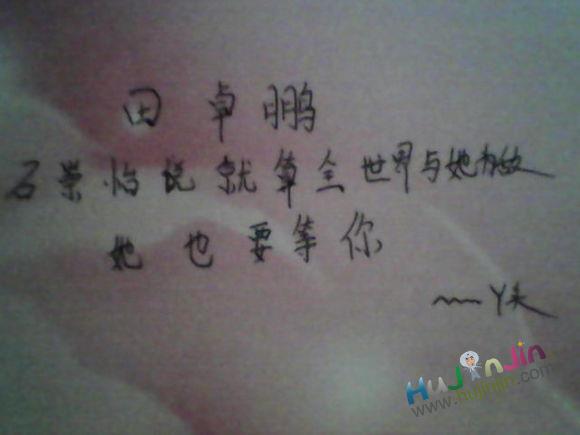 田卓鹏
石景怡说就算全世界与她为敌
她也要等你
~~丫头
HuJinJin
www.hujinjin.com